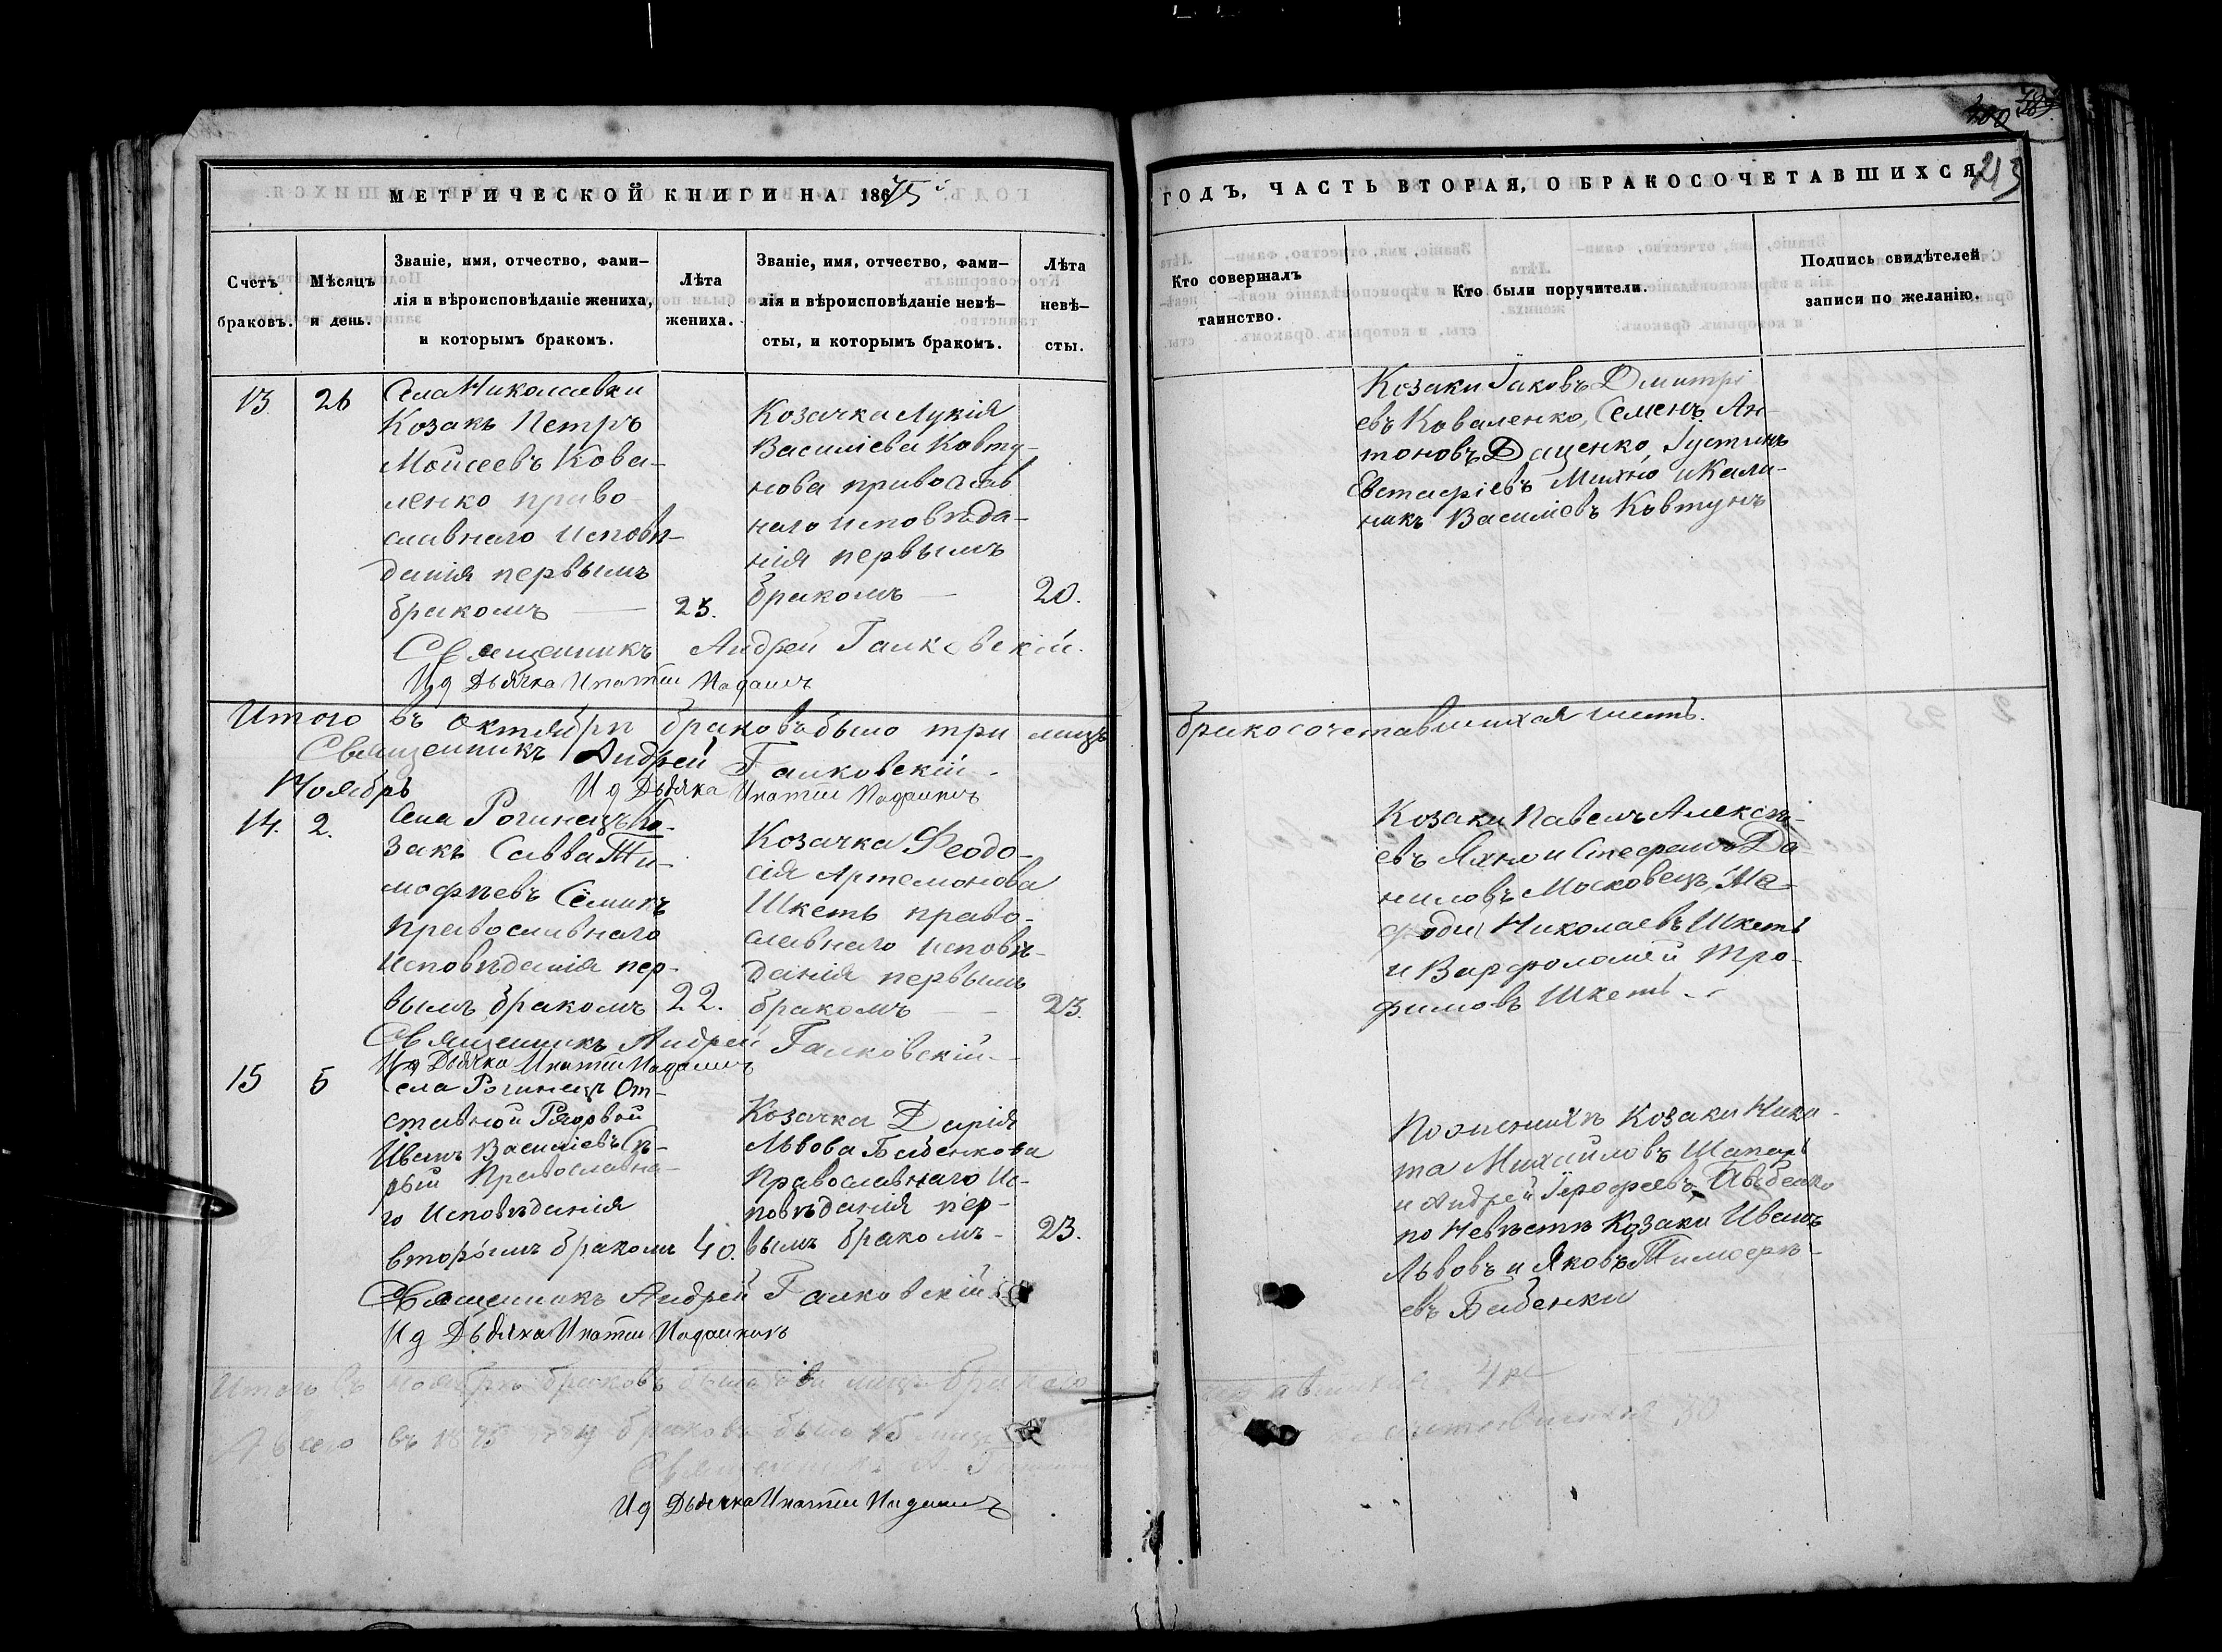 213
МЕТРИЧЕСКОЙ КНИГИ НА 1875
ГОДЪ, ЧАСТЬ ВТОРАЯ, О БРАКОСОЧЕТАВШИХСЯ.
Счетъ
браковъ.
Мѣсяцъ
и день.
Званіе, имя, отчество, фами-
лія и вѣроисповѣданіе жениха,
и которымъ бракомъ.
Лѣта
жениха.
Званіе, имя, отчество, фами-
лія и вѣроисповѣданіе невѣ-
сты, и которымъ бракомъ.
Лѣта
невѣ-
сты.
Кто совершалъ
таинство.
Кто были поручители.
Подпись свидѣтелей
записи по желанію.
13
26
Села Николаевки
Козакъ Петръ
Мойсеевъ Кова-
ленко право
славнаго исповѣ-
данія первымъ
бракомъ
25.
Козачка Лукія
Василіева Ковту-
нова православ
наго исповѣда-
нія первымъ
бракомъ
20.
Козаки Іаковъ Дмитрі
евъ Коваленко, Семенъ Ан-
тоновъ Даценко, Іустинъ
Евстафіевъ Михно и Кали-
никъ Василіевъ Ковтунъ
Священникъ Андрей Галковскій.
И д Дьячка Ипатій
Итого въ Октябрѣ браковъ было три лицъ бракосочетавшихся шесть.
Священникъ Андрей Галковскій
Ноябрь
И д Дьячка Ипатій
14.
2.
Села Рогинецъ Ко-
закъ Савва Ти-
мофѣевъ Сёмикъ
Православнаго
Исповѣданія пер-
вымъ бракомъ
22.
Козачка Феодо-
сія Артемонова
Шкеть право-
славнаго исповѣ-
данія первымъ
бракомъ
23.
Козаки Павелъ Алексѣ-
евъ Яхно и Стефанъ Да-
ниловъ Московецъ, Ме-
фодій Николаевъ Шкеть
и Варфоломей Тро-
фимовъ Шкеть
Священникъ Андрей Галковскій
И д Дьячка Ипатій
15
5
Села Рогинецъ От-
ставной Рядовой
Иванъ Василіевъ Сѣ-
рый Православна-
го Исповѣданія
вторымъ бракомъ
40.
Козачка Дарія
Львова Бабенкова
Православнаго Ис-
повѣданія пер-
вымъ бракомъ
23.
По женихѣ Козаки Ники-
та Михайловъ Шапарь
и Андрей Іерофеевъ
по Невѣстѣ Козаки Иванъ
Львовъ и Яковъ Тимофѣ-
евъ Бабенки
Священникъ Андрей Галковскій
И д Дьячка Ипатій
Итого въ ноябрѣ браковъ было два лицъ бракосо четавшихся 4ре
А всего въ 1875 году браковъ было 15 лицъ 30
Священникъ А.
И д Дьячка Ипатій